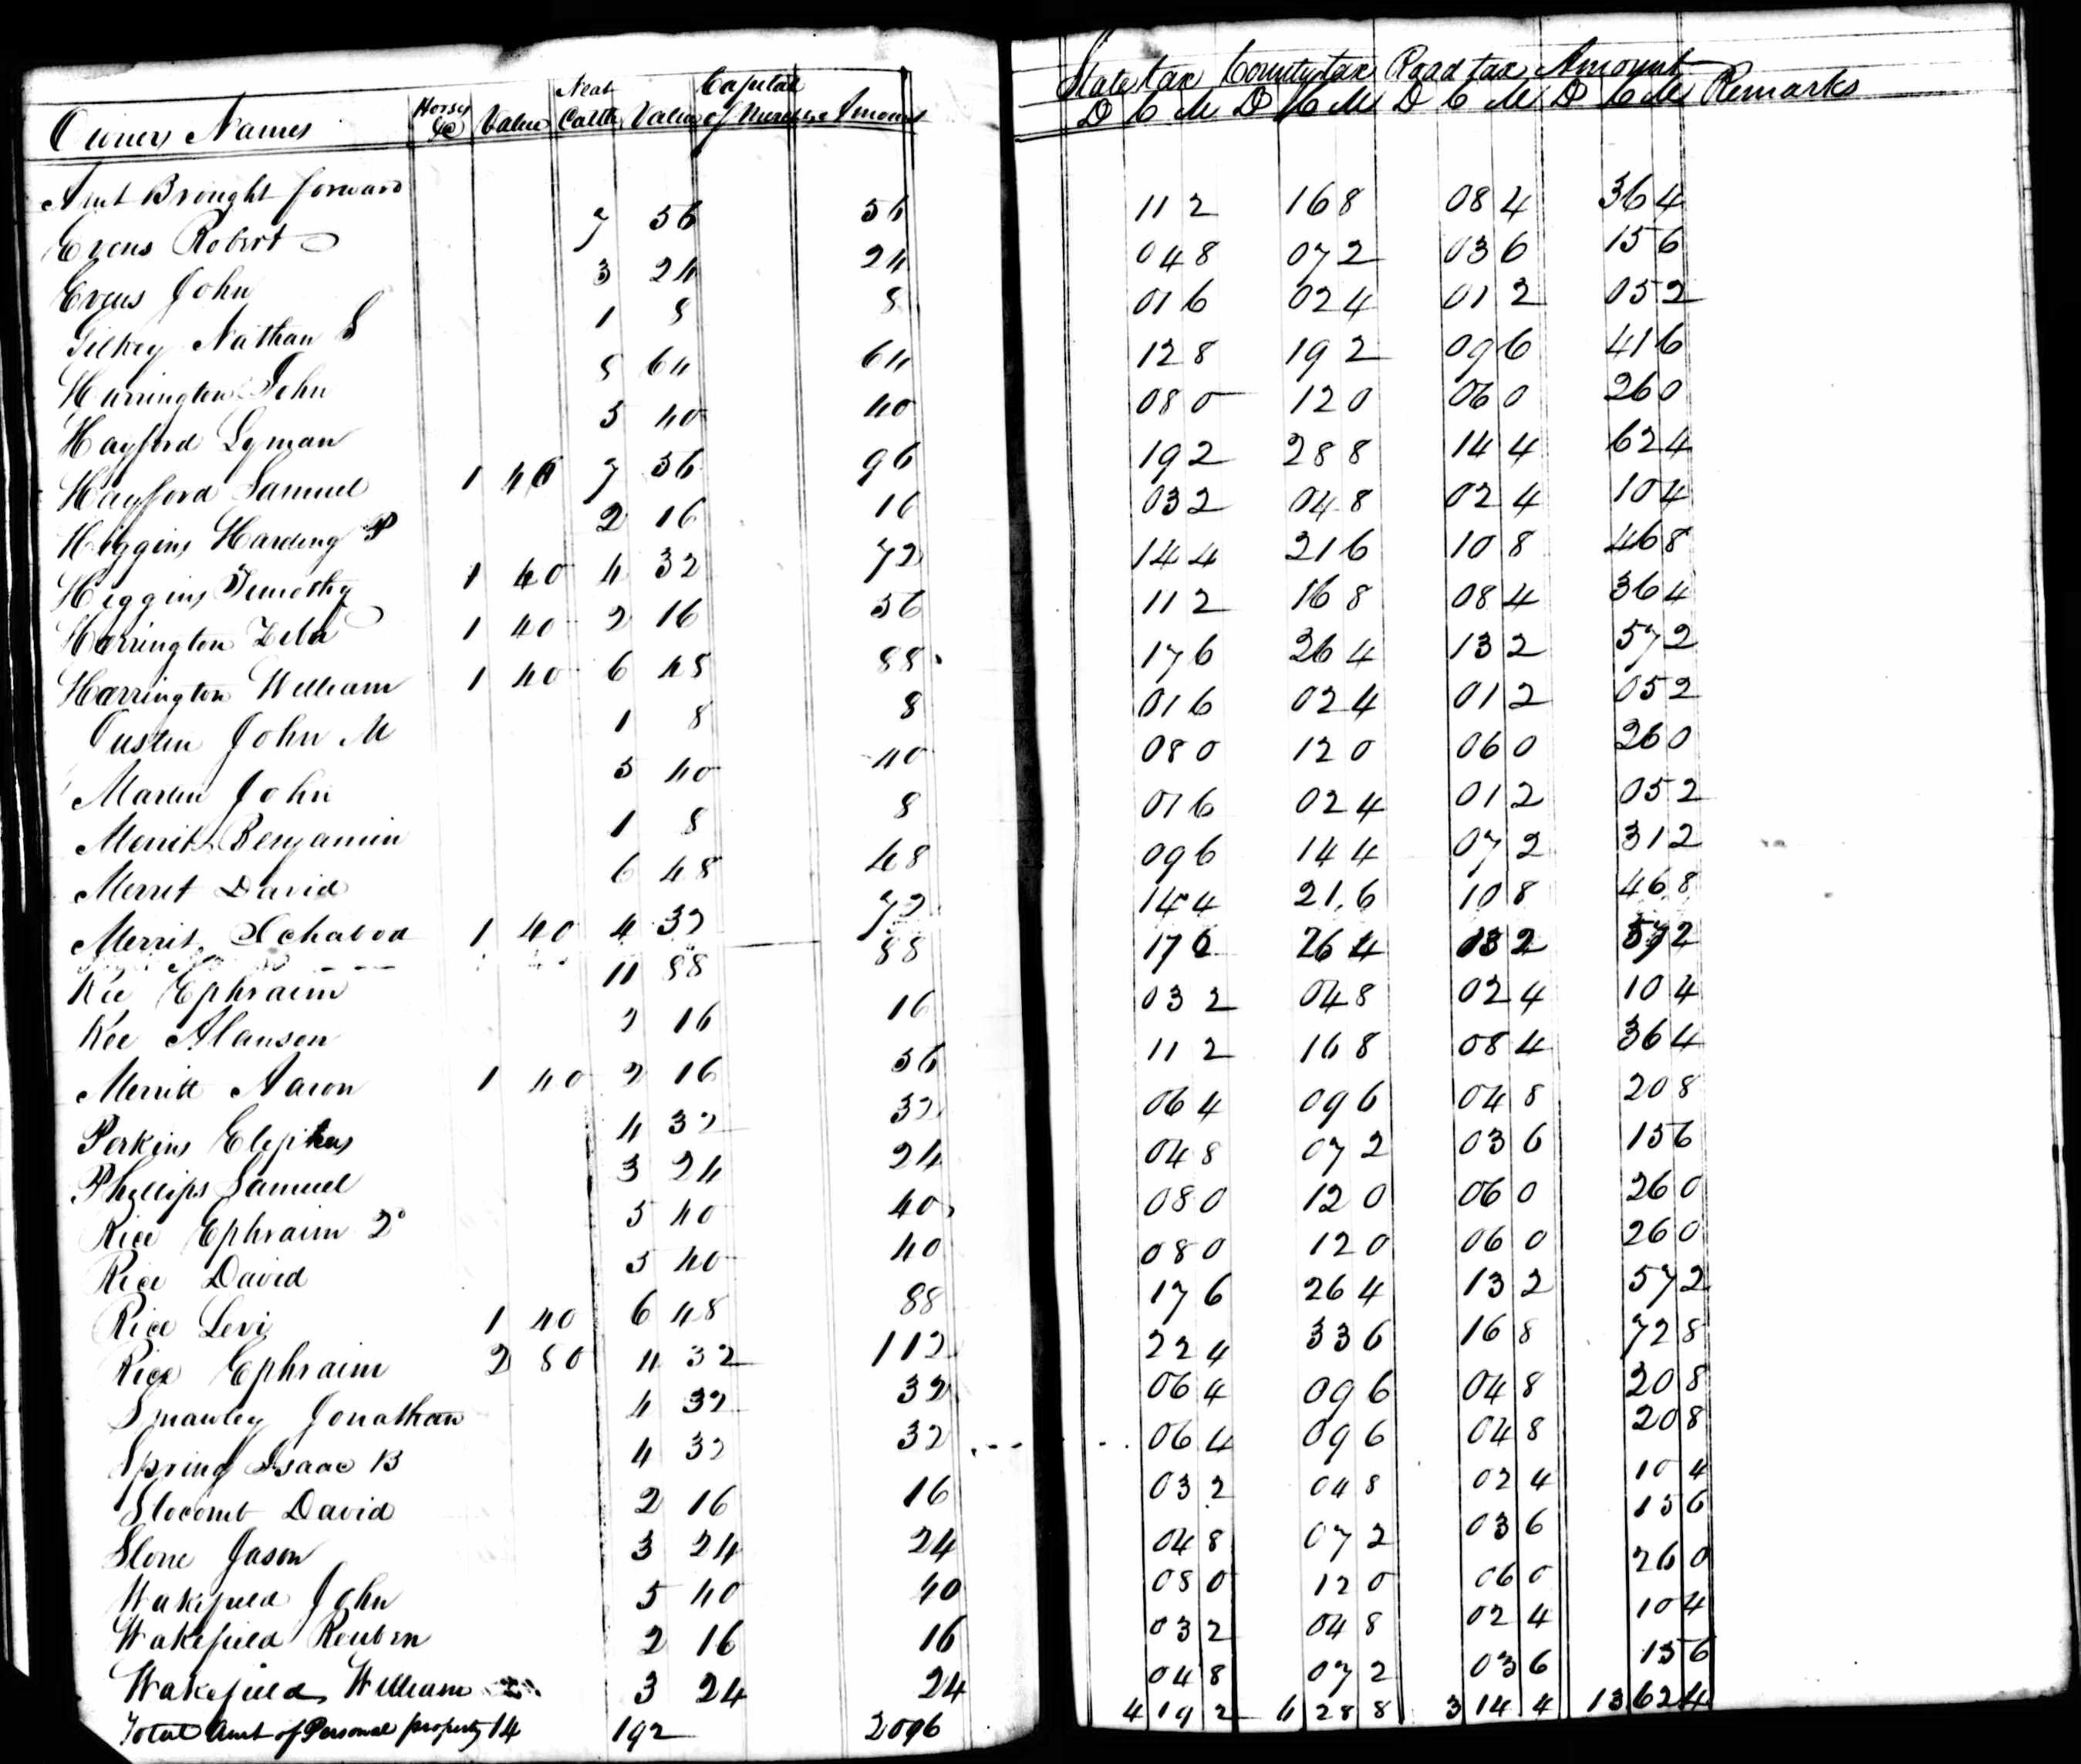 Owners Names Horses &c Value Neat Cattle Value Capital of Merchse Amount
Amt Brought forward
Evens Robert 7 56 56
Evens John 3 24 24
Gilkey Nathan S 1 8 8
Harrington John 8 64 64
Hayford Lyman 5 40 40
Hayford Samuel 1 40 7 56 96
Higgins Harding P 2 16 16
Higgins Timothy 1 40 4 32 72
Harrington Zeba 1 40 2 16 56
Harrington William 1 40 6 48 88
John M 1 8 8
Martin John 5 40 40
Merrit Benjamin 1 8 8
Merret David 6 48 48
Merrit Ichabod 1 40 4 32 72
Kee Ephraim 11 88 88
Kee Alanson 2 16 16
Merritt Aaron 1 40 2 16 56
Perkins Eliphas 4 32 32
Phillips Samuel 3 24 24
Rice Ephraim 2d 5 40 40
Rice David 5 40 40
Rice Levi 1 40 6 48 88
Rice Ephraim 2 80 4 32 112
Smawley Jonathan 4 32 32
Spring Isaac B 4 32 32
Slocomb David 2 16 16
Slone Jason 3 24 24
Wakefield John 5 40 40
Wakefield Reuben 2 16 16
Wakefield William 3 24 24
Total Amt of Personal property 14 192 2096
State tax County tax Road tax Amount Remarks
D C M D C M D C M D C M
112 168 084 364
048 072 036 156
016 024 012 052
128 192 096 416
080 120 060 260
192 288 144 624
032 048 024 104
144 216 108 468
112 168 084 364
176 264 132 572
016 024 012 052
080 120 060 260
016 024 012 052
096 144 072 312
144 216 108 468
176 264 132 572
032 048 024 104
112 168 084 364
064 096 048 208
048 072 036 156
080 120 060 260
080 120 060 260
176 264 132 572
224 336 168 728
064 096 048 208
064 096 048 208
032 048 024 104
048 072 036 156
080 120 060 260
032 048 024 104
048 072 036 156
4192 6288 3144 13624